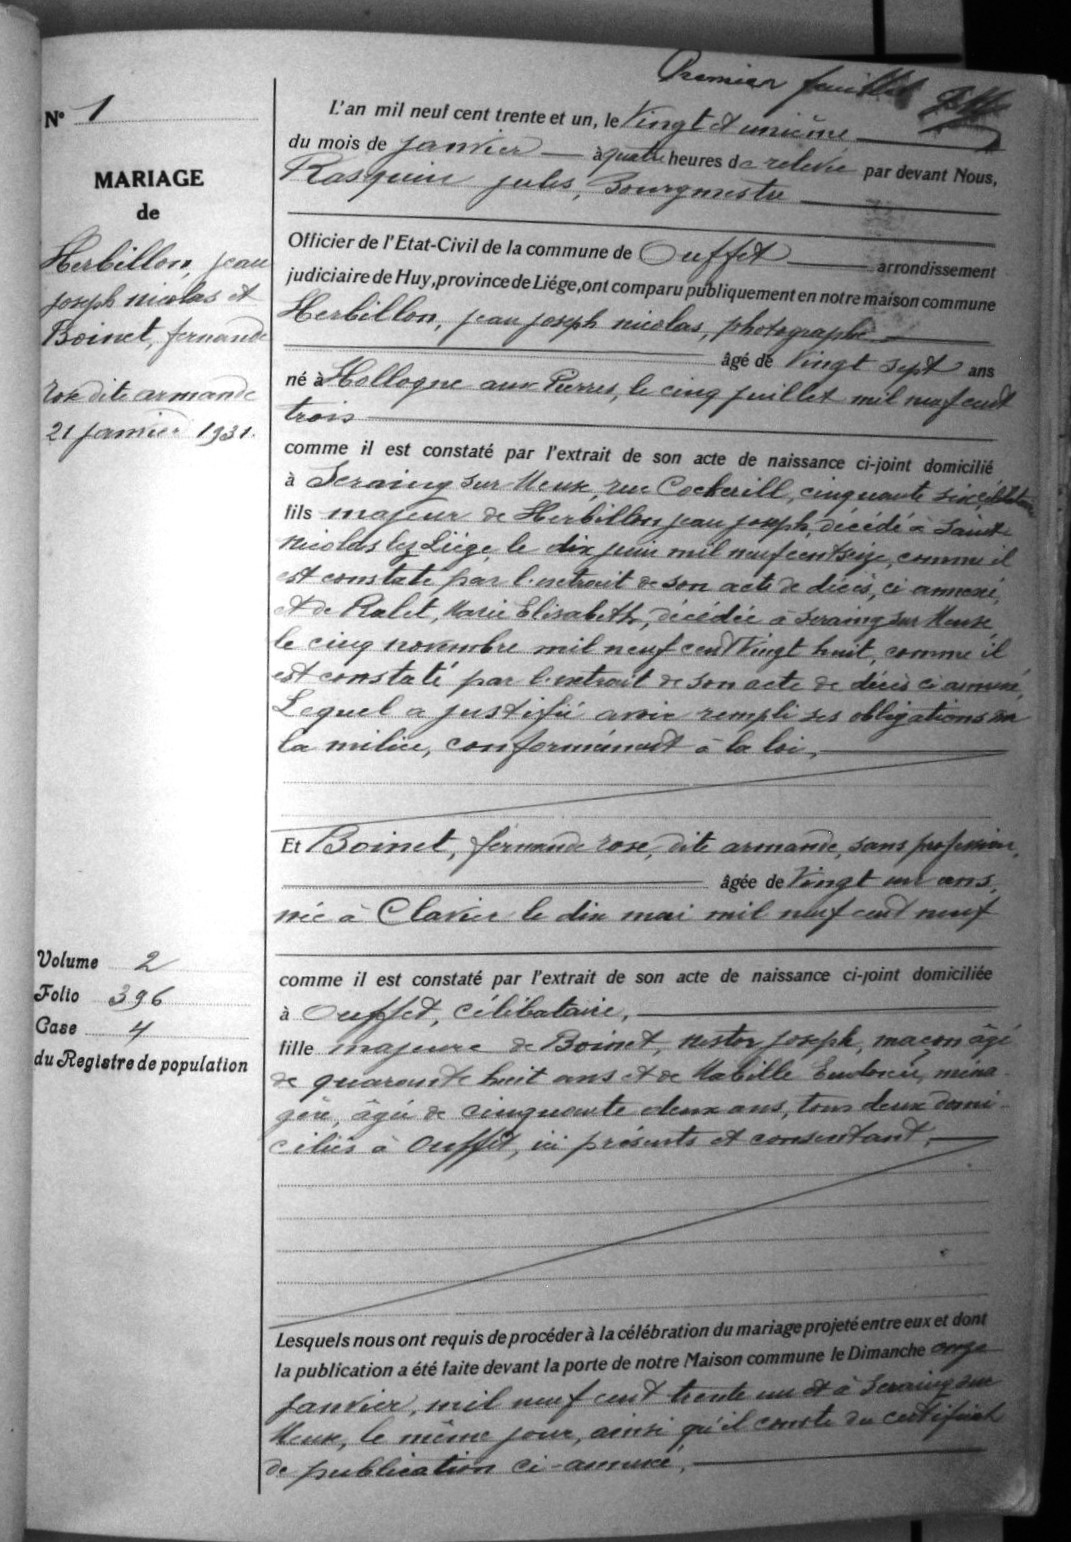 Premier feuillet
N° 1
MARIAGE
de
Herbillon, jean
joseph nicolas et
Boinet, fernande
rose dite armande
21 janvier 1931.
Volume 2
Folio 396
Case 4
du Registre de population
L'an mil neuf cent trente et un, le Vingt et unième
du mois de janvier à quatre heures de relevée par devant Nous,
Rasquin jules, Bourgmestre
Officier de l'Etat-Civil de la commune de Ouffet arrondissement
judiciaire de Huy, province de Liége, ont comparu publiquement en notre maison commune
Herbillon, jean joseph nicolas, photographe
âgé de Vingt sept ans
né à Hollogne aux Pierres, le cinq juillet mil neuf cent
trois
comme il est constaté par l'extrait de son acte de naissance ci-joint domicilié
à Seraing sur Meuse, rue Cockerill, cinquante six, célibataire
fils majeur de Herbillon jean joseph, décédé à Saint
Nicolas lez Liége, le dix juin mil neuf cent seize, comme il
est constaté par l'extrait de son acte de décès, ci annexé,
et de Ralet, Marie Elisabeth, décédée à Seraing sur Meuse,
le cinq novembre mil neuf cent Vingt huit, comme il
est constaté par l'extrait de son acte de décès ci annexé,
Lequel a justifié avoir rempli ses obligations sur
la milice, conformément à la loi,
Et Boinet, fernande rose, dite armande, sans profession,
âgée de Vingt un ans,
née à Clavier le dix mai mil neuf cent neuf
comme il est constaté par l'extrait de son acte de naissance ci-joint domiciliée
à Ouffet, célibataire,
fille majeure de Boinet, nestor joseph, maçon âgé
de quarante huit ans et de Mabille Eudoxie, ména-
gère, âgée de cinquante deux ans, tous deux domi-
ciliés à Ouffet, ici présents et consentant,
Lesquels nous ont requis de procéder à la célébration du mariage projeté entre eux et dont
la publication a été faite devant la porte de notre Maison commune le Dimanche onze
janvier, mil neuf cent trente un et à Seraing sur
Meuse, le même jour, ainsi qu'il conste du certificat
de publication ci-annexé,